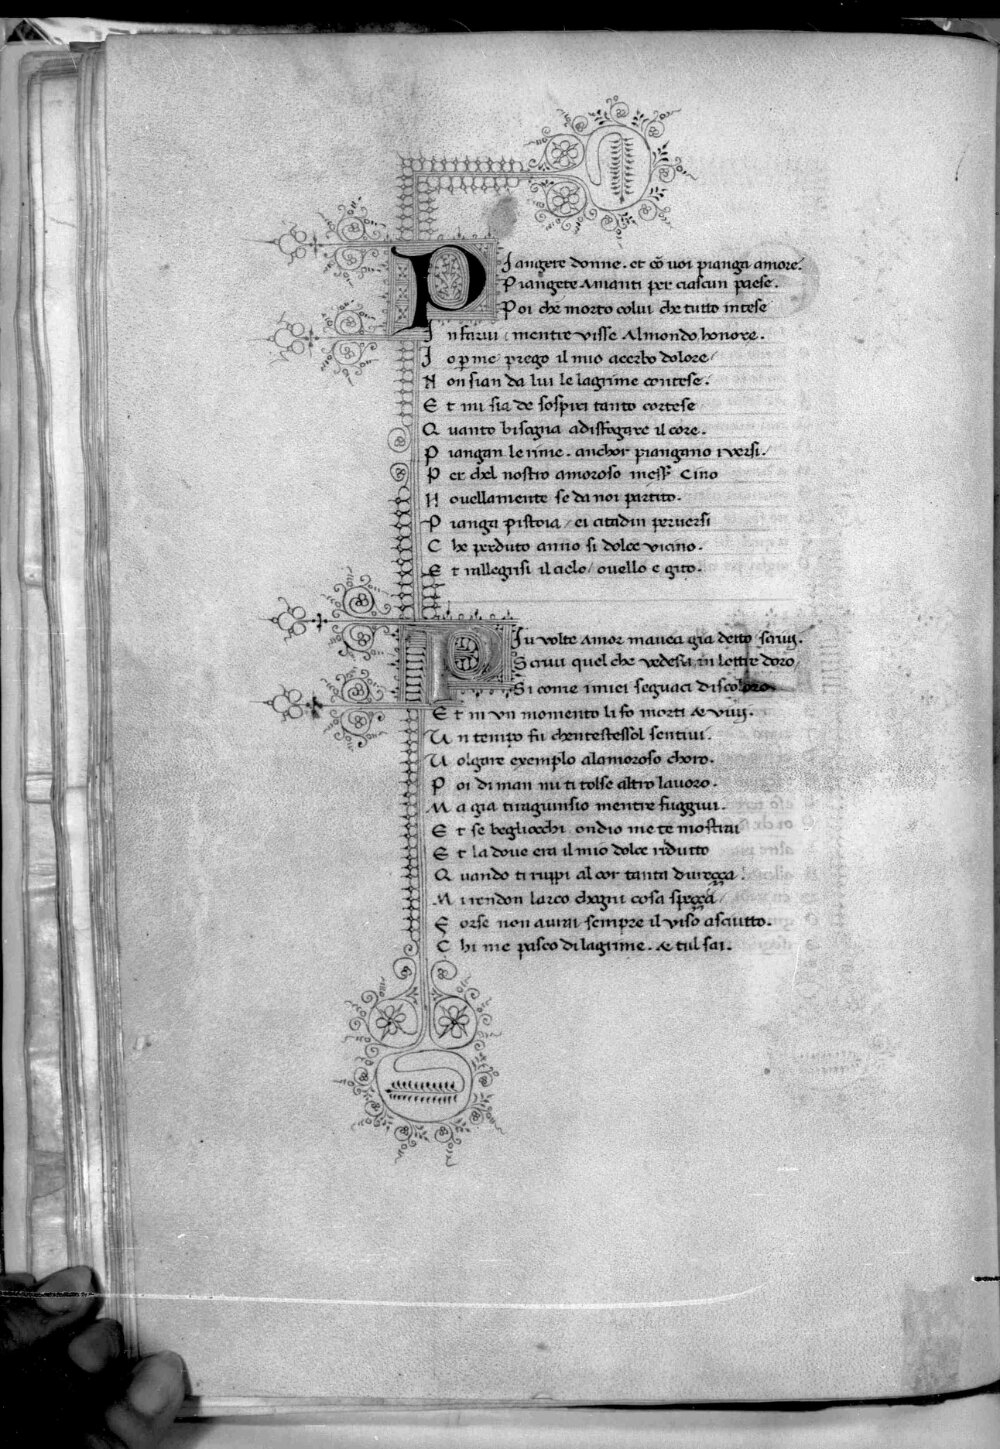 Piangete donne. et cō voi pianga amore.
Piangete Amanti per ciascun paese.
Poi che morto colui che tutto intese
In farui / mentre visse Al mondo, honore.
Io p me / prego il mio acerbo dolore /
Non sian da lui le lagrime contese.
Et mi sia de sospiri tanto cortese
Quanto bisogna adisfogare il core.
Piangan le rime. anchor piangano i versi.
Per chel nostro amoroso mess̄ Cino
Nouellamente se da noi partito.
Pianga pistoia / ei citadin peruersi
Che perduto anno si dolce vicino.
Et rallegrisi il cielo / ouello e gito.
Piu volte Amor mauea gia detto scriui.
Scriui quel che vedesti, in lettre doro /
Si come i miei seguaci discoloro
Et in vn momento li fo morti & viui.
Un tempo fu chentestessol sentiui.
Uolgare exemplo alamoroso choro.
Poi di man mi ti tolse altro lauoro.
Ma gia ti ragiunsio mentre fuggiui.
Et se begliocchi ondio me te mostrai
Et la doue era il mio dolce ridutto
Quando ti ruppi al cor tanta dureçça
Mi rendon larco chogni cosa speçça /
Forse non aurai sempre il viso asciutto.
Chi me pasco di lagrime. & tul sai.